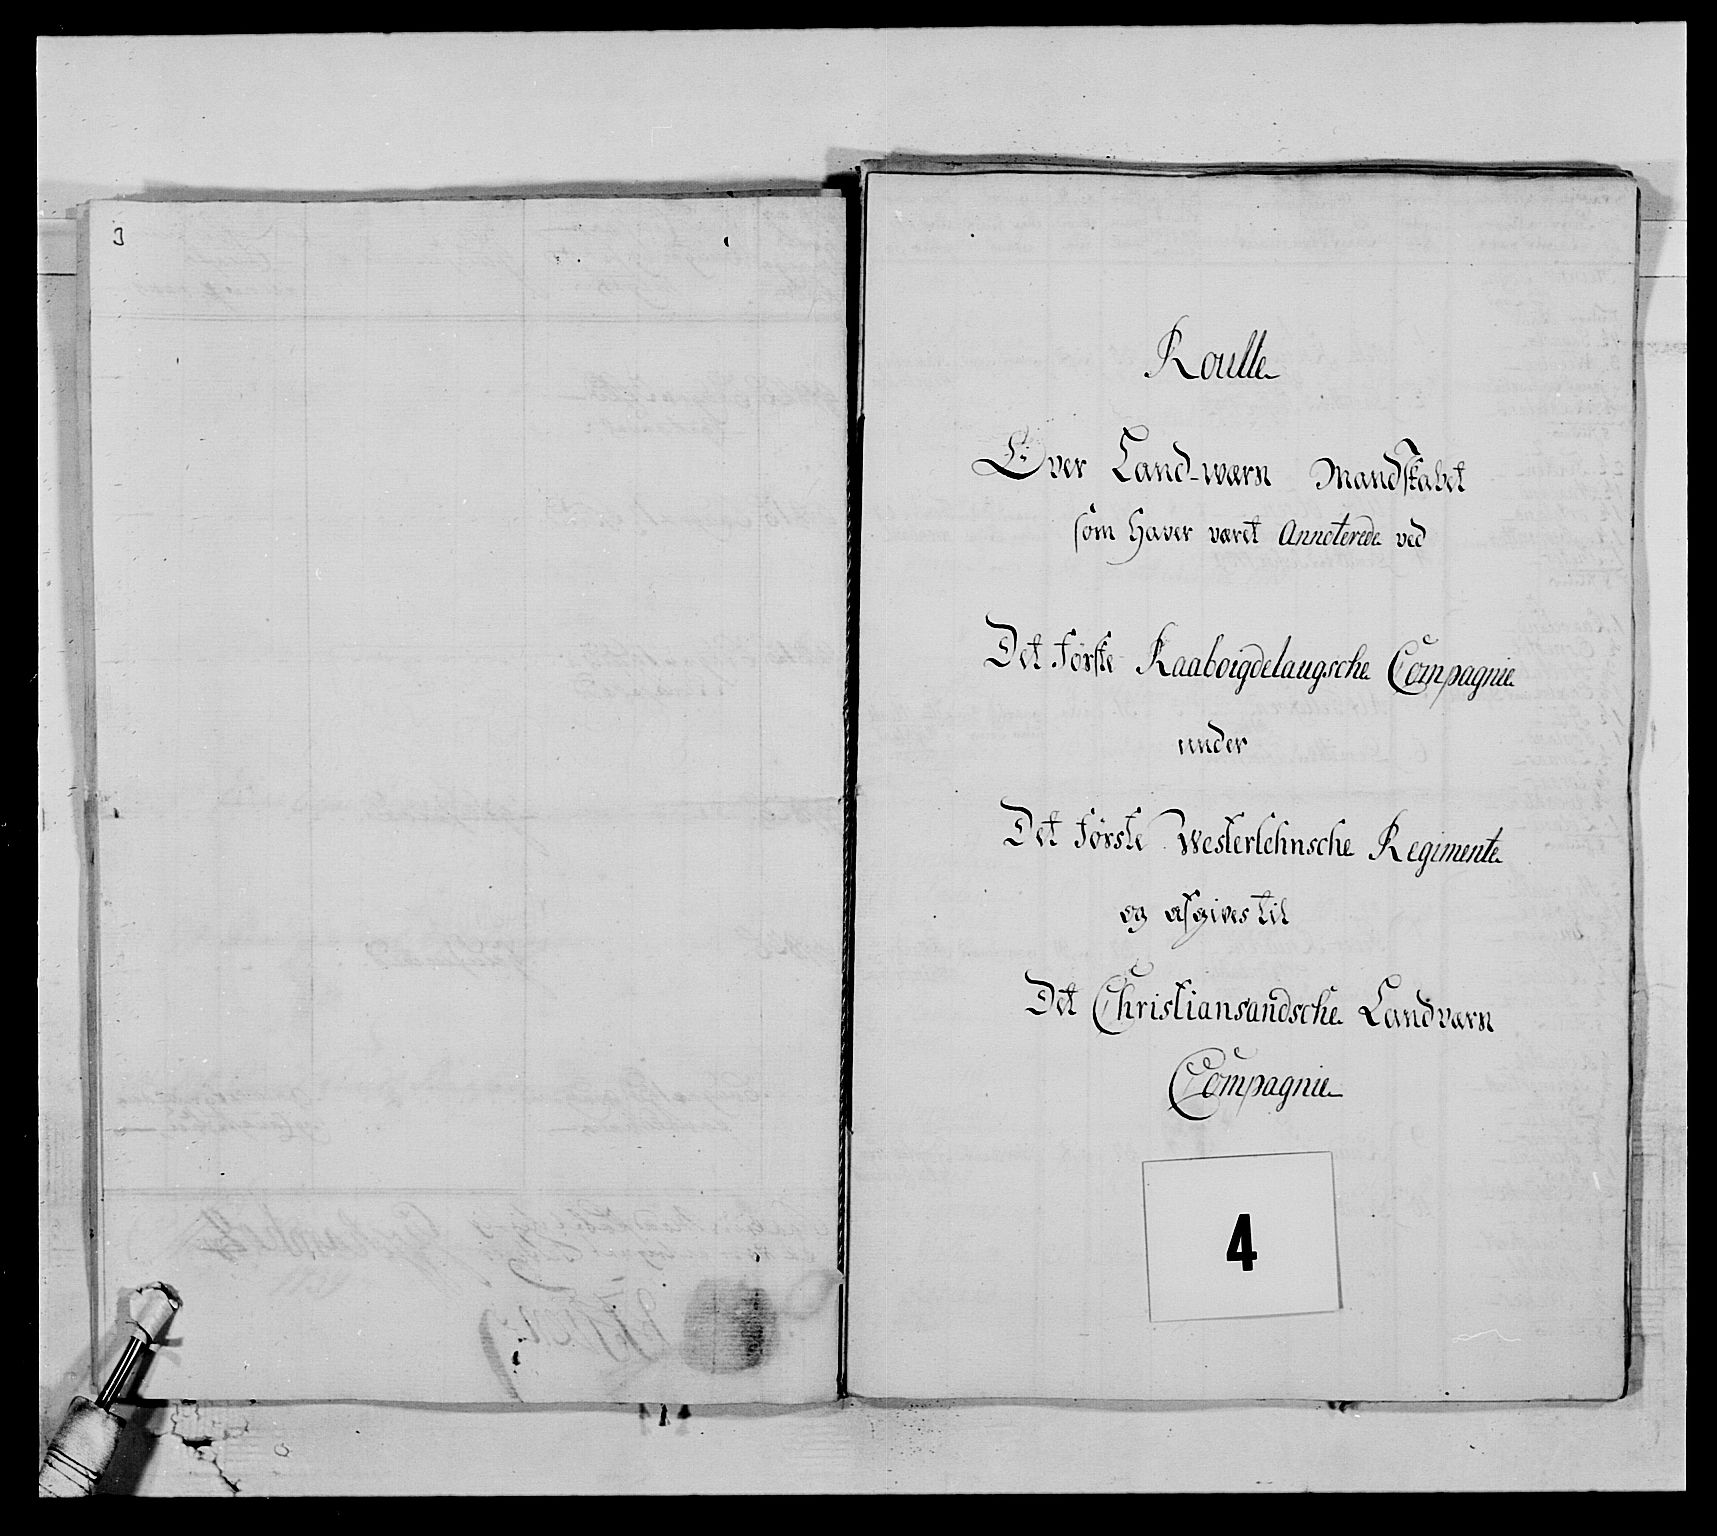 3
Roulle
Over Land-wærn Mandskabet
som haver været Annoterede ved
Det første Raaboigdelaugsche Compagnie
under
Det første Westerlehnsche Regimente
og afgives til
Det Christiansandsche Landværn
Compagnie
4